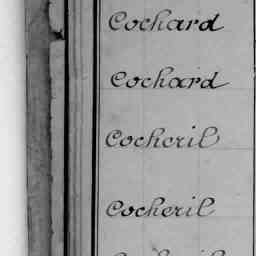 Cochard
Cochard
Cocheril
Cocheril